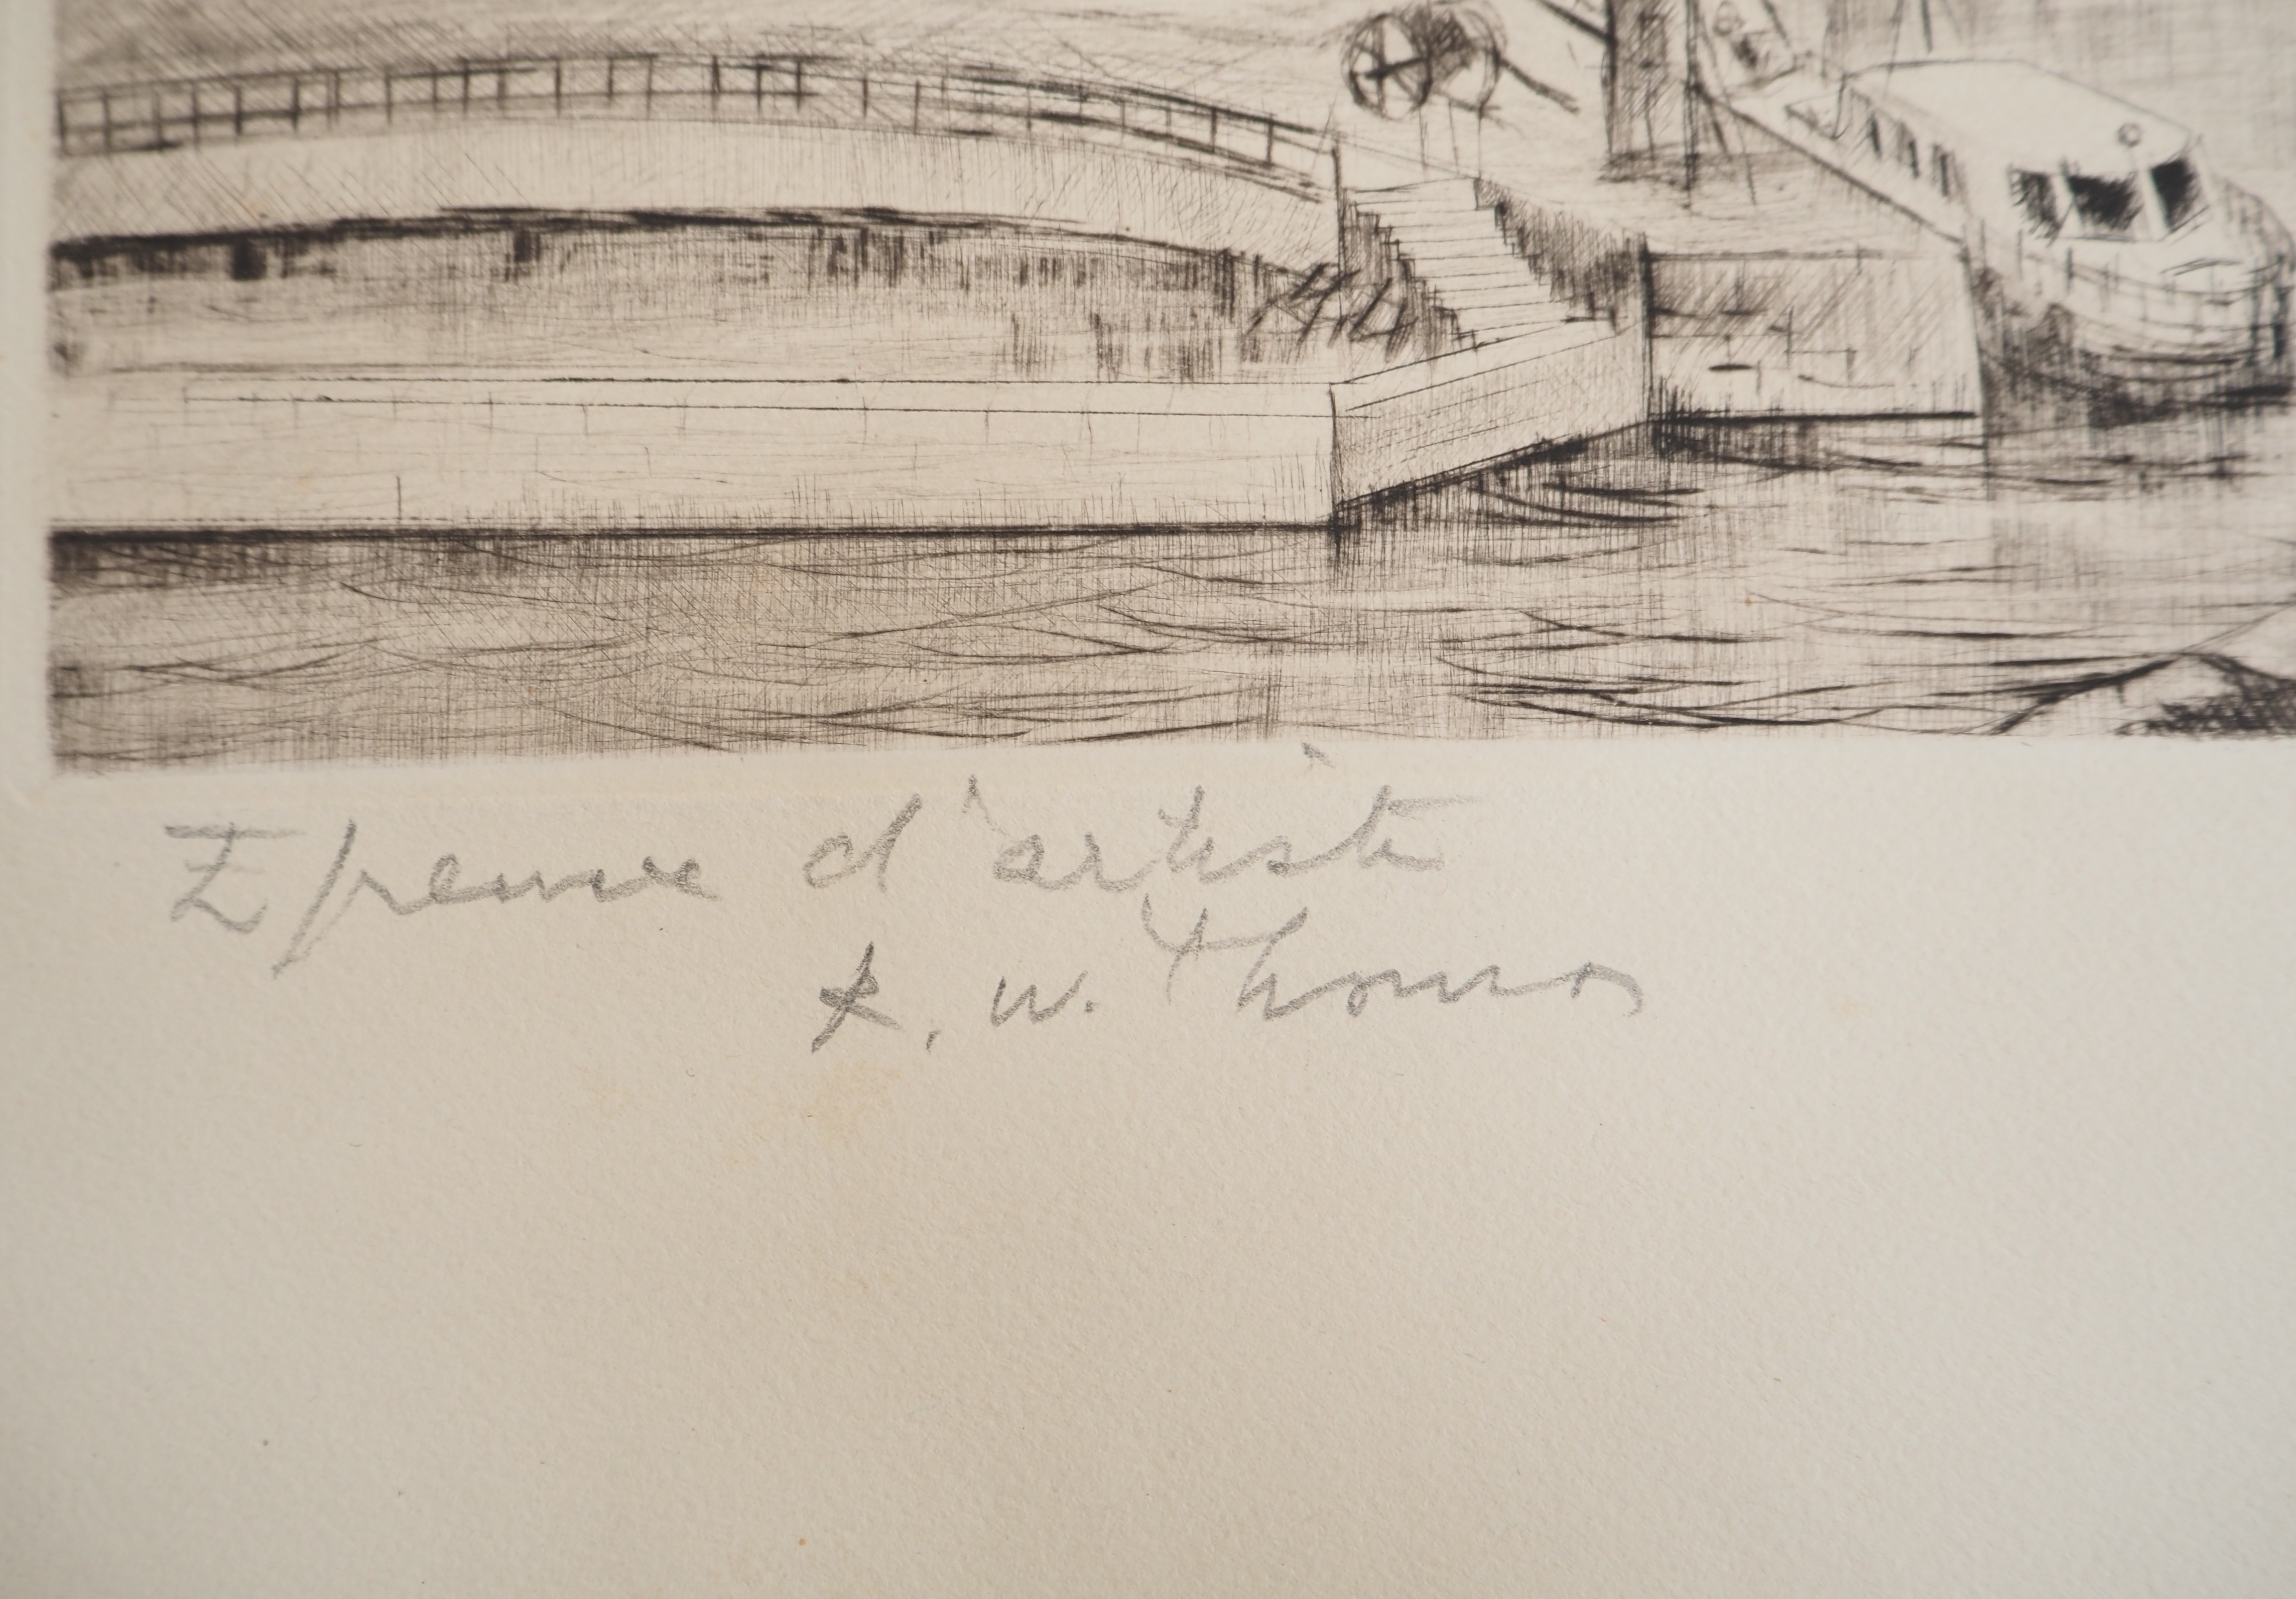 Epreuve d'artiste
R. W. Thomas